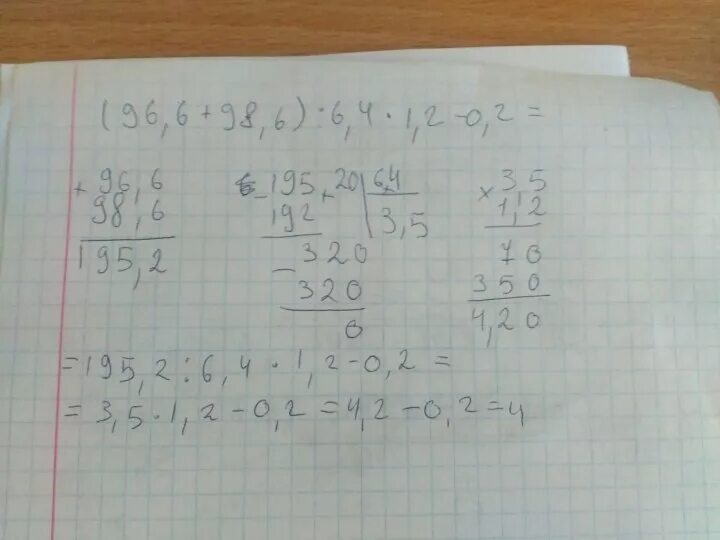 (96,6+98,6):6,4·1,2-0,2=
+ 96,6
98,6
195,2
- 195,20 | 6,4
192 | 3,5
- 320
320
0
× 3,5
1,2
70
350
4,20
=195,2:6,4·1,2-0,2=
=3,5·1,2-0,2=4,2-0,2=4